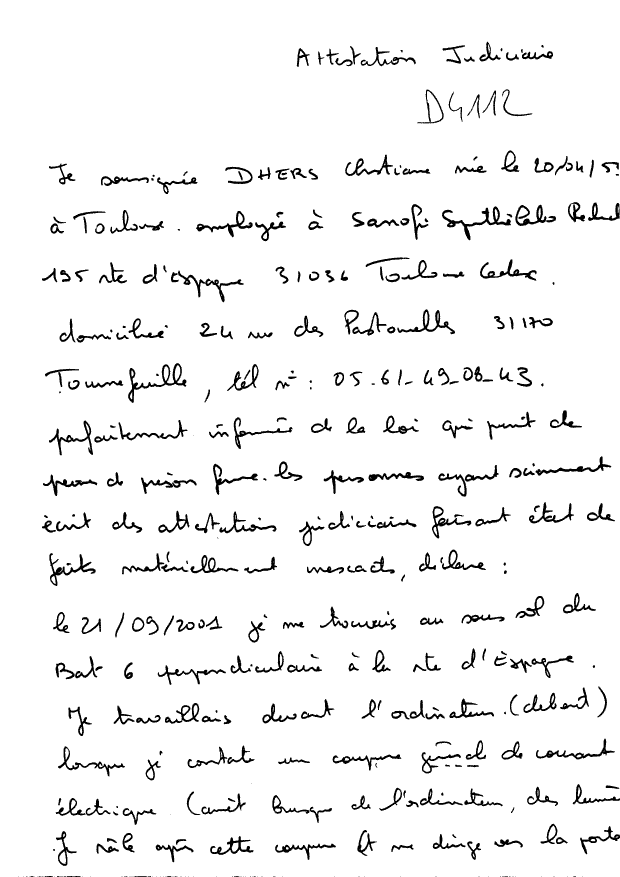 Attestation Judiciaire
D4112
Je soussignée DHERS Christiane née le 20/04/5
à Toulouse. employée à Sanofi Synthélabo
195 rte d'Espagne 31036 Toulouse Cedex.
domiciliée 24 rue des Pastourelles 31170
Tournefeuille, tél n°: 05.61-49-08-43.
parfaitement informée de la loi qui punit de
peine de prison ferme. les personnes ayant sciemment
écrit des attestations judiciaires faisant état de
faits matériellement inexacts, déclare :
le 21/09/2001 je me trouvais au sous sol du
Bat 6 perpendiculaire à la rte d'Espagne.
Je travaillais devant l'ordinateur. (debout)
lorsque je constate un coupure générale de courant
électrique (arrêt brusque de l'ordinateur, des lumiè
Je râle après cette coupure et me dirige vers la porte